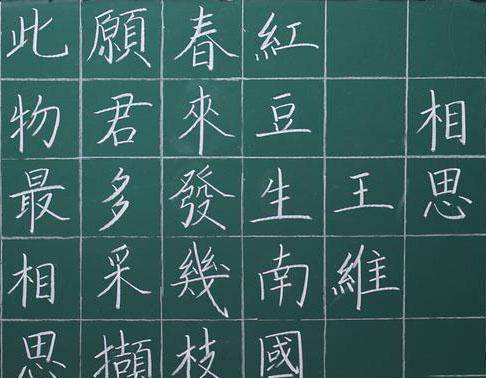 相思
王維
紅豆生南國
春來發幾枝
願君多采擷
此物最相思